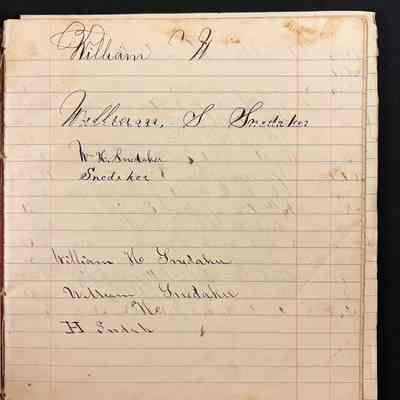 William W
William. S Snedaker
W H. Snedaker
Snedaker
William H Snedaker
William Snedaker
H
H Snedak